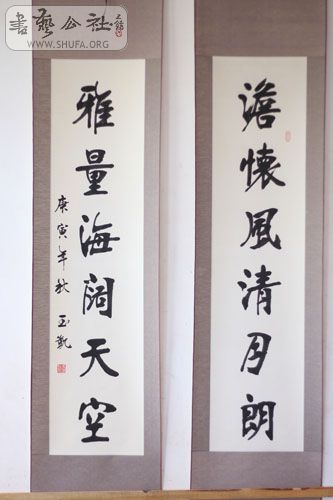 澹懷風清月朗
雅量海阔天空
庚寅年秋 玉凯
書藝公社
WWW.SHUFA.ORG